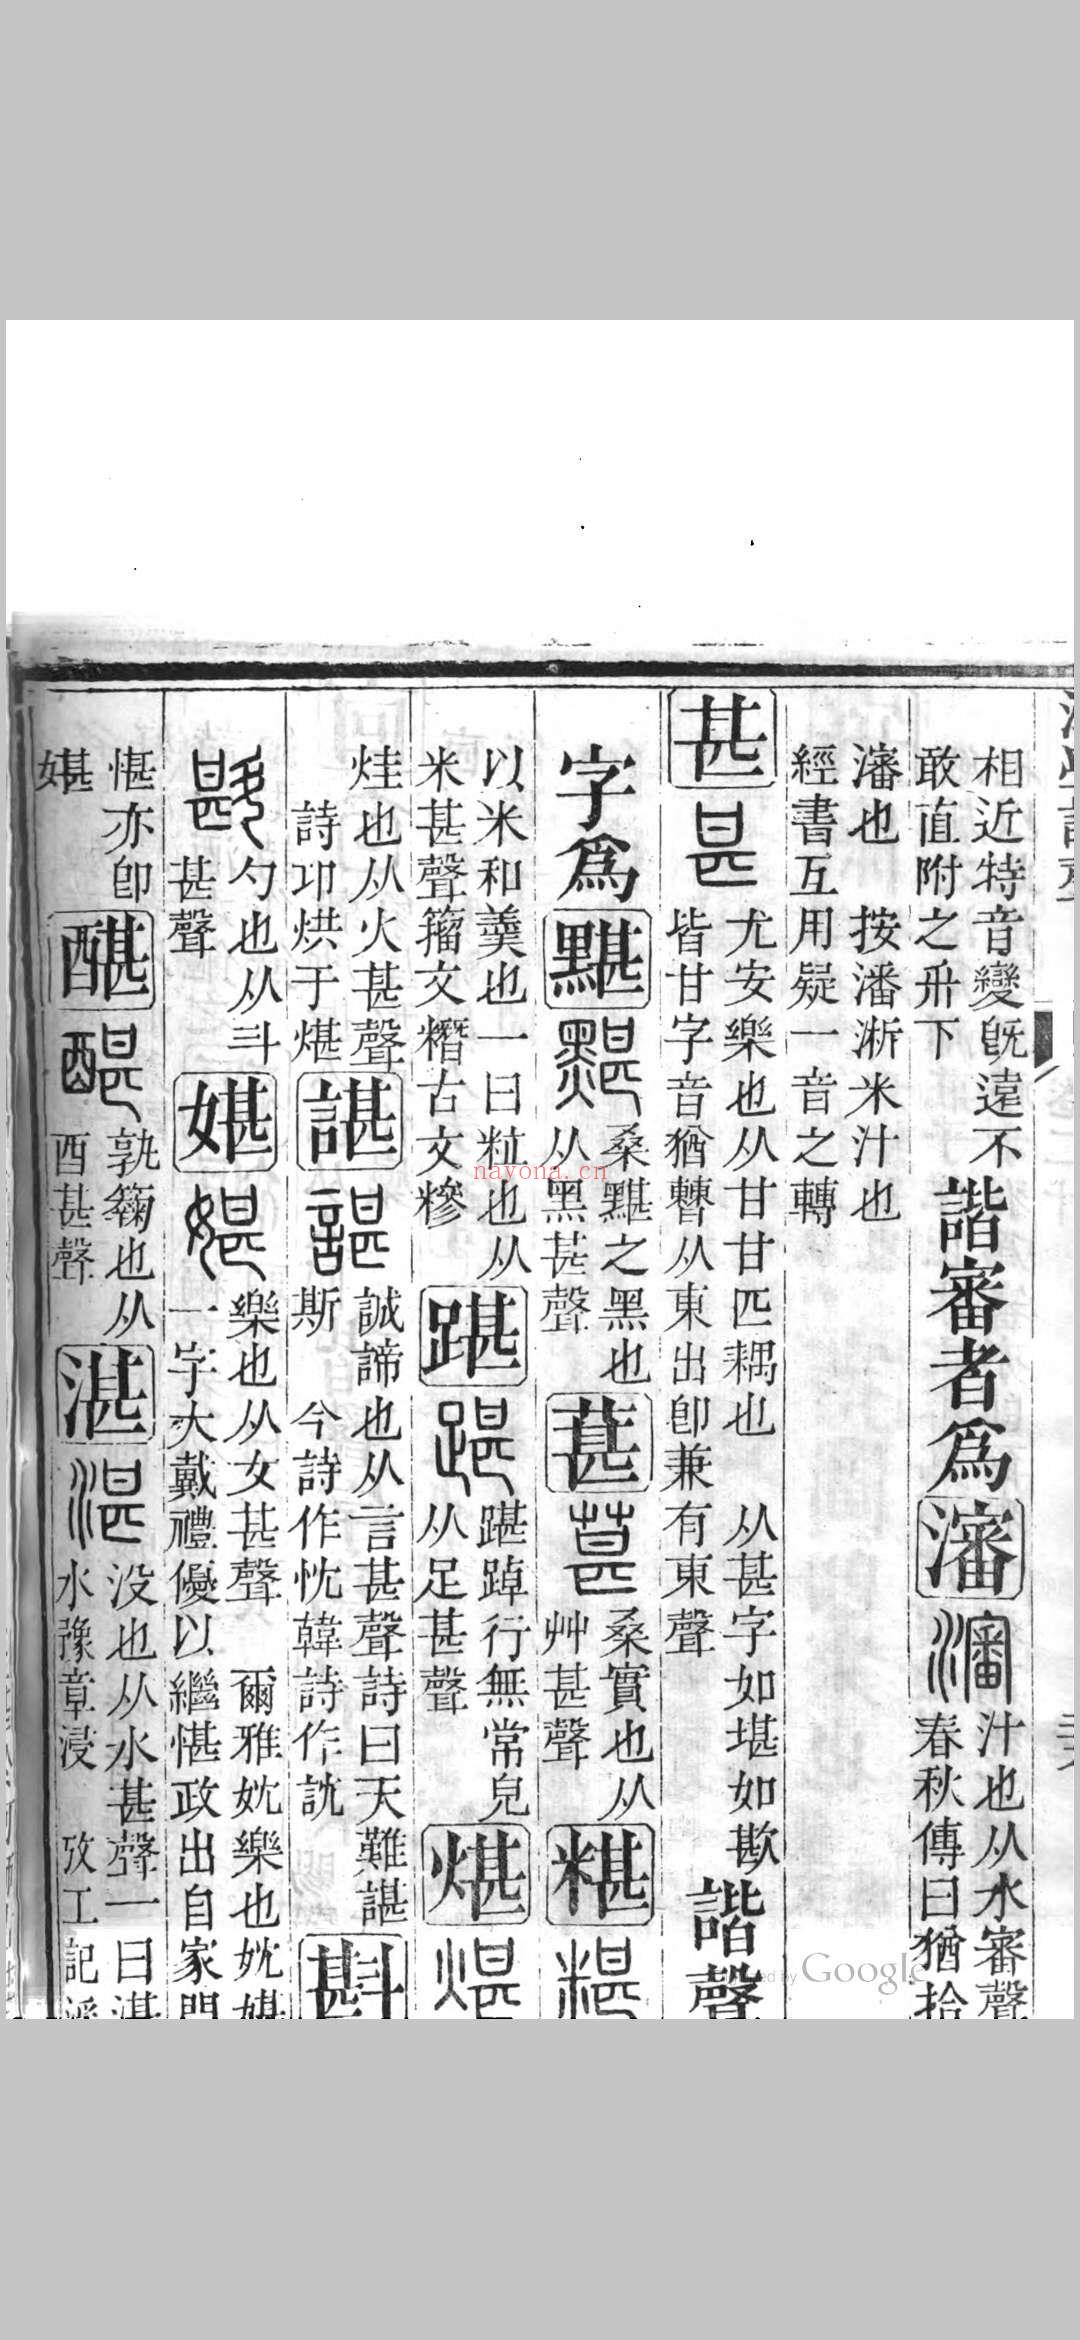 相近特音變旣遠不
敢直附之升下
諧審者爲瀋
汁也从水審聲
春秋傳曰猶拾
瀋也 按潘淅米汁也
經書互用疑一音之轉
甚
尤安樂也从甘甘匹耦也 从甚字如堪如歁
皆甘字音猶㯥从東出卽兼有東聲
諧聲
字爲黮
桑黮之黑也
从黑甚聲
葚
桑實也从
艸甚聲
糂
以米和羹也一曰粒也从
米甚聲籒文糣古文糝
踸
踸踔行無常皃
从足甚聲
煁
烓也从火甚聲
詩卬烘于煁
諶
誠諦也从言甚聲詩曰天難諶
斯 今詩作忱韓詩作訦
斟
勺也从斗
甚聲
媅
樂也从女甚聲 爾雅妉樂也妉媅
一字大戴禮優以繼愖政出自家門
愖亦卽
媅
醓
孰䱋也从
酉甚聲
湛
没也从水甚聲一曰湛
水豫章浸 攷工記
nayona.cn
Digitized by Google